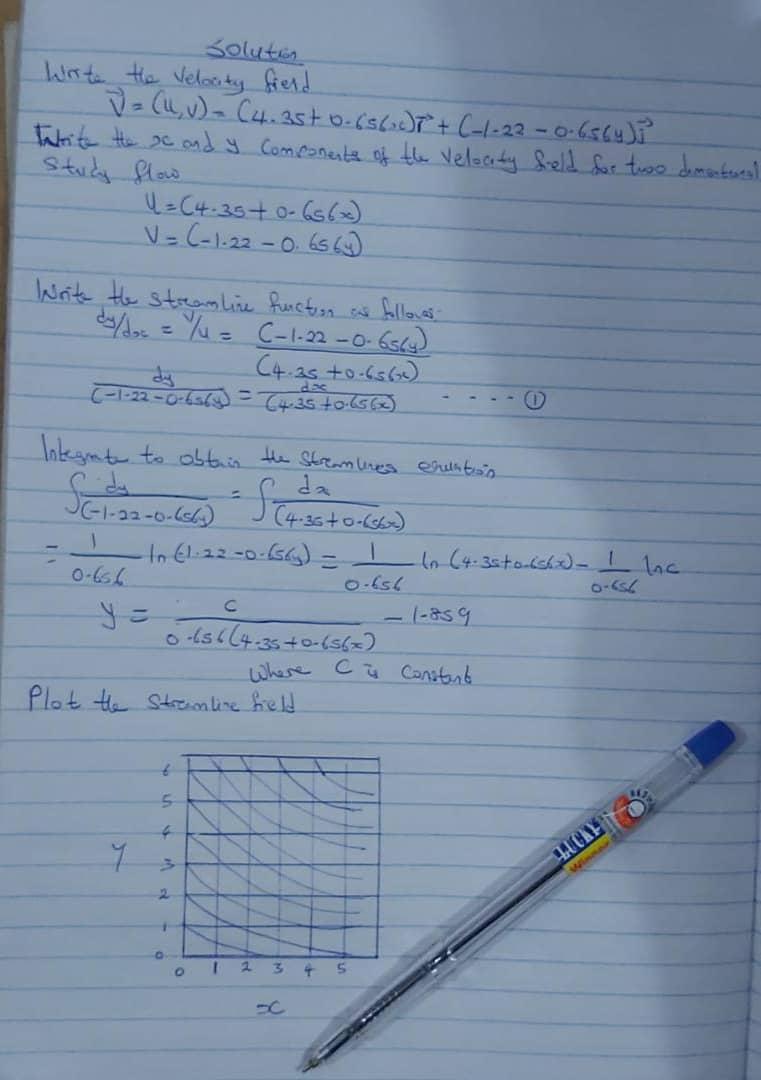 Solution
Write the Velocity field
V⃗ = (u,v) = (4.35+ 0.656x)i⃗ + (-1.22 - 0.656y)j⃗
Write the x and y Components of the Velocity field for two dimentional
Study flow
u = (4.35+ 0.656x)
v = (-1.22 - 0.656y)
Write the streamline function as follows.
dy/dx = v/u = (-1.22 - 0.656y)
(4.35 +0.656x)
dy/(-1.22-0.656y) = dx/(4.35+0.656x) - - - - ①
Integrate to obtain the Streamlines equation
∫ dy/(-1.22-0.656y) = ∫ dx/(4.35+0.656x)
= 1/0.656 ln (-1.22-0.656y) = 1/0.656 ln (4.35+0.656x) - 1/0.656 lnc
y = c/0.656(4.35+0.656x) - 1.859
Where C is Constant
Plot the Streamline field
6
5
4
Y
3
2
1
0
0 1 2 3 4 5
x
LUCKY
Winner